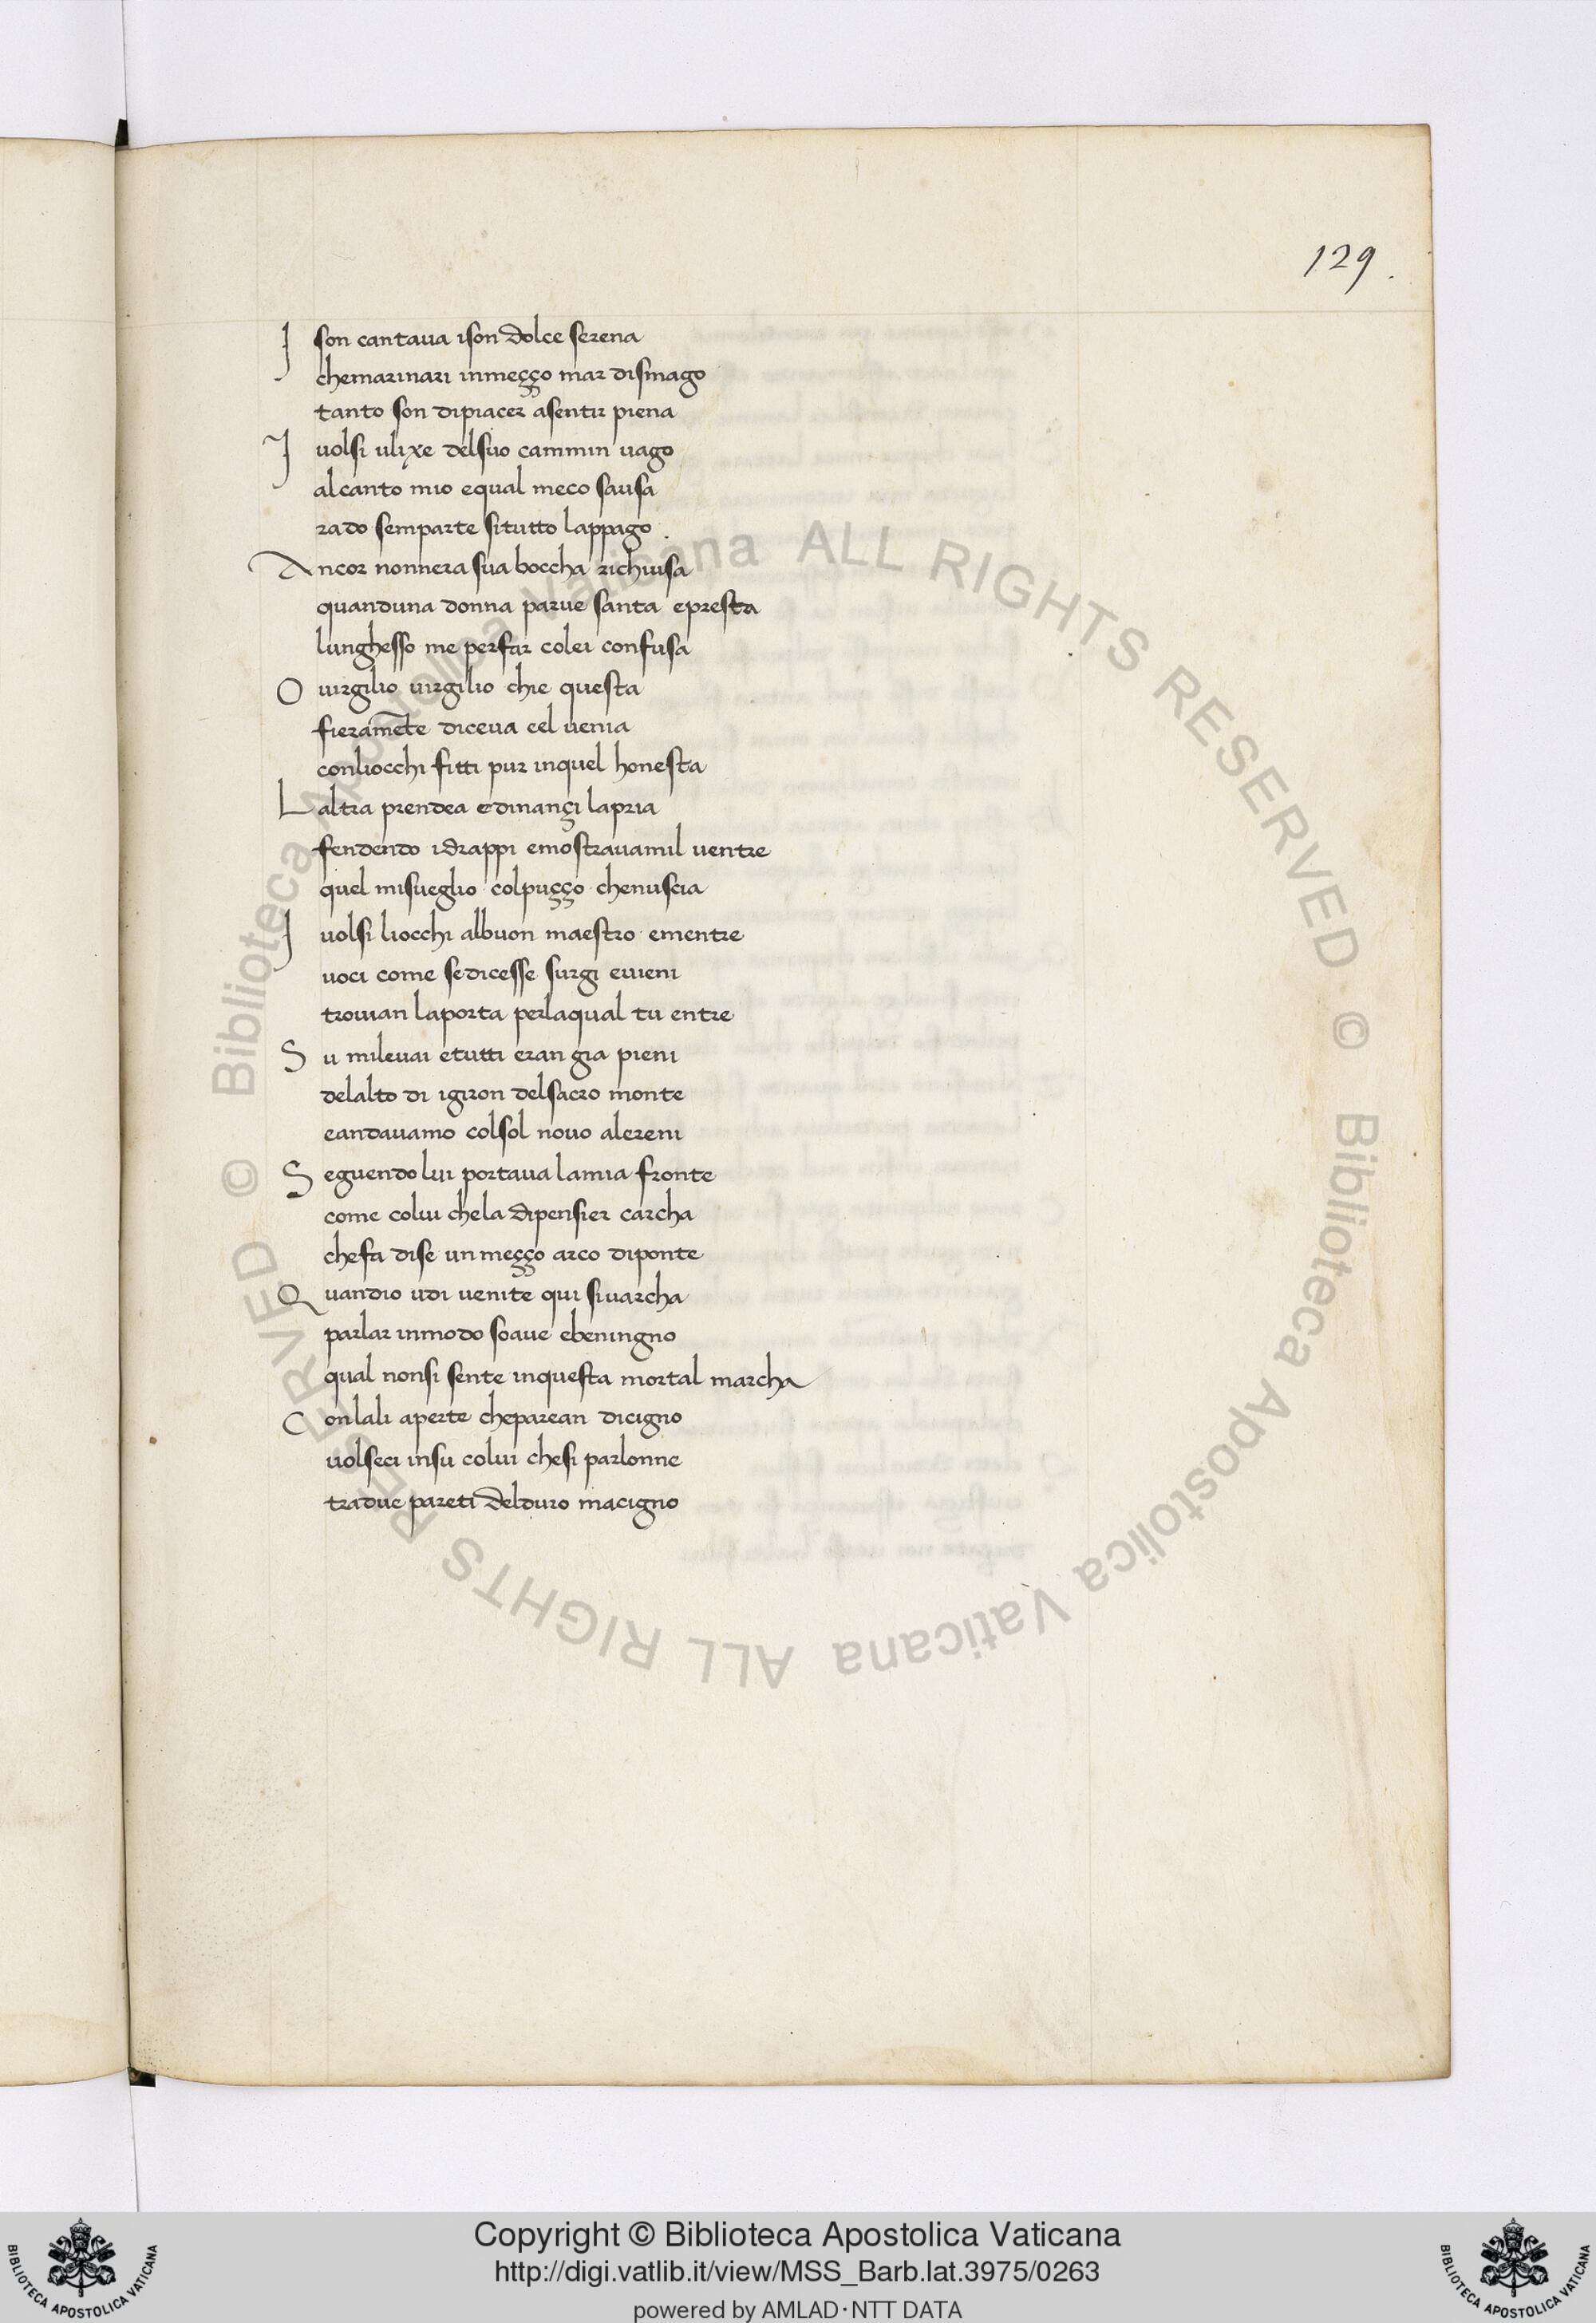 129.
I son cantaua ison dolce serena
chemarinari inmeçço mar dismago
tanto son dipiacer asentir piena
I uolsi ulixe delsuo cammin uago
alcanto mio equal meco sausa
rado semparte situtto lappago.
Ancor nonnera sua boccha richiusa
quanduna donna parue santa epresta
lunghesso me perfar colei confusa
O uirgilio uirgilio chie questa
fieram̅ete diceua eel uenia
conliocchi fitti pur inquel honesta
Laltra prendea edinançi lapria
fendendo idrappi emostrauamil uentre
quel misueglio colpuçço chenuscia
I uolsi liocchi albuon maestro ementre
uoci come sedicesse surgi euieni
trouian laporta perlaqual tu entre
Su mileuai etutti eran gia pieni
delalto di igiron delsacro monte
eandauamo colsol nouo alereni
Seguendo lui portaua lamia fronte
come colui chela dipensier carcha
chefa dise un meçço arco diponte
Quandio udi uenite qui siuarcha
parlar inmodo soaue ebeningno
qual nonsi sente inquesta mortal marcha
Conlali aperte cheparean dicigno
uolseci insu colui chesi parlonne
tradue pareti delduro macigno
© Biblioteca Apostolica Vaticana ALL RIGHTS RESERVED © Biblioteca Apostolica Vaticana ALL RIGHTS RESERVED
Copyright © Biblioteca Apostolica Vaticana
http://digi.vatlib.it/view/MSS_Barb.lat.3975/0263
powered by AMLAD·NTT DATA
BIBLIOTECA APOSTOLICA VATICANA
BIBLIOTECA APOSTOLICA VATICANA